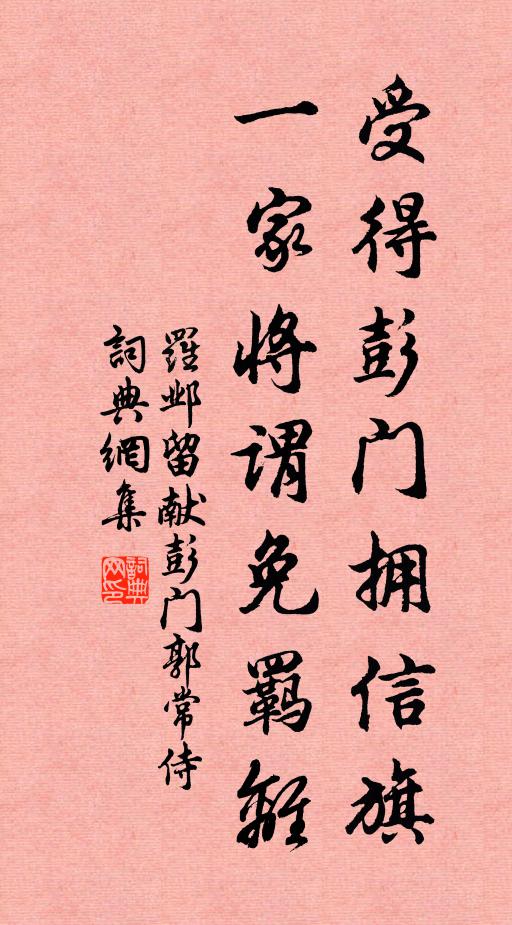 受得彭门拥信旗
一家将谓免羁離
羅邺留献彭门郭常侍
詞典網集
詞典网印